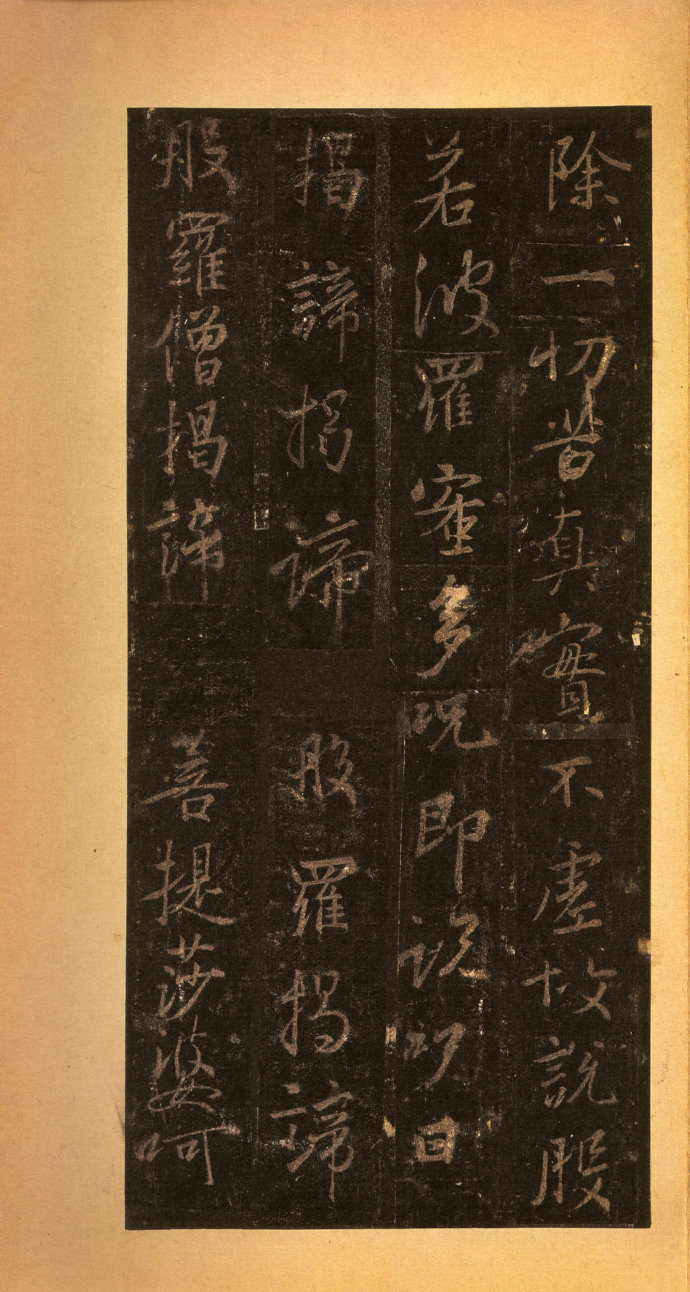 除一切苦真實不虛故說般
若波羅蜜多呪即說呪曰
揭諦揭諦　般羅揭諦
般羅僧揭諦　菩提莎婆呵